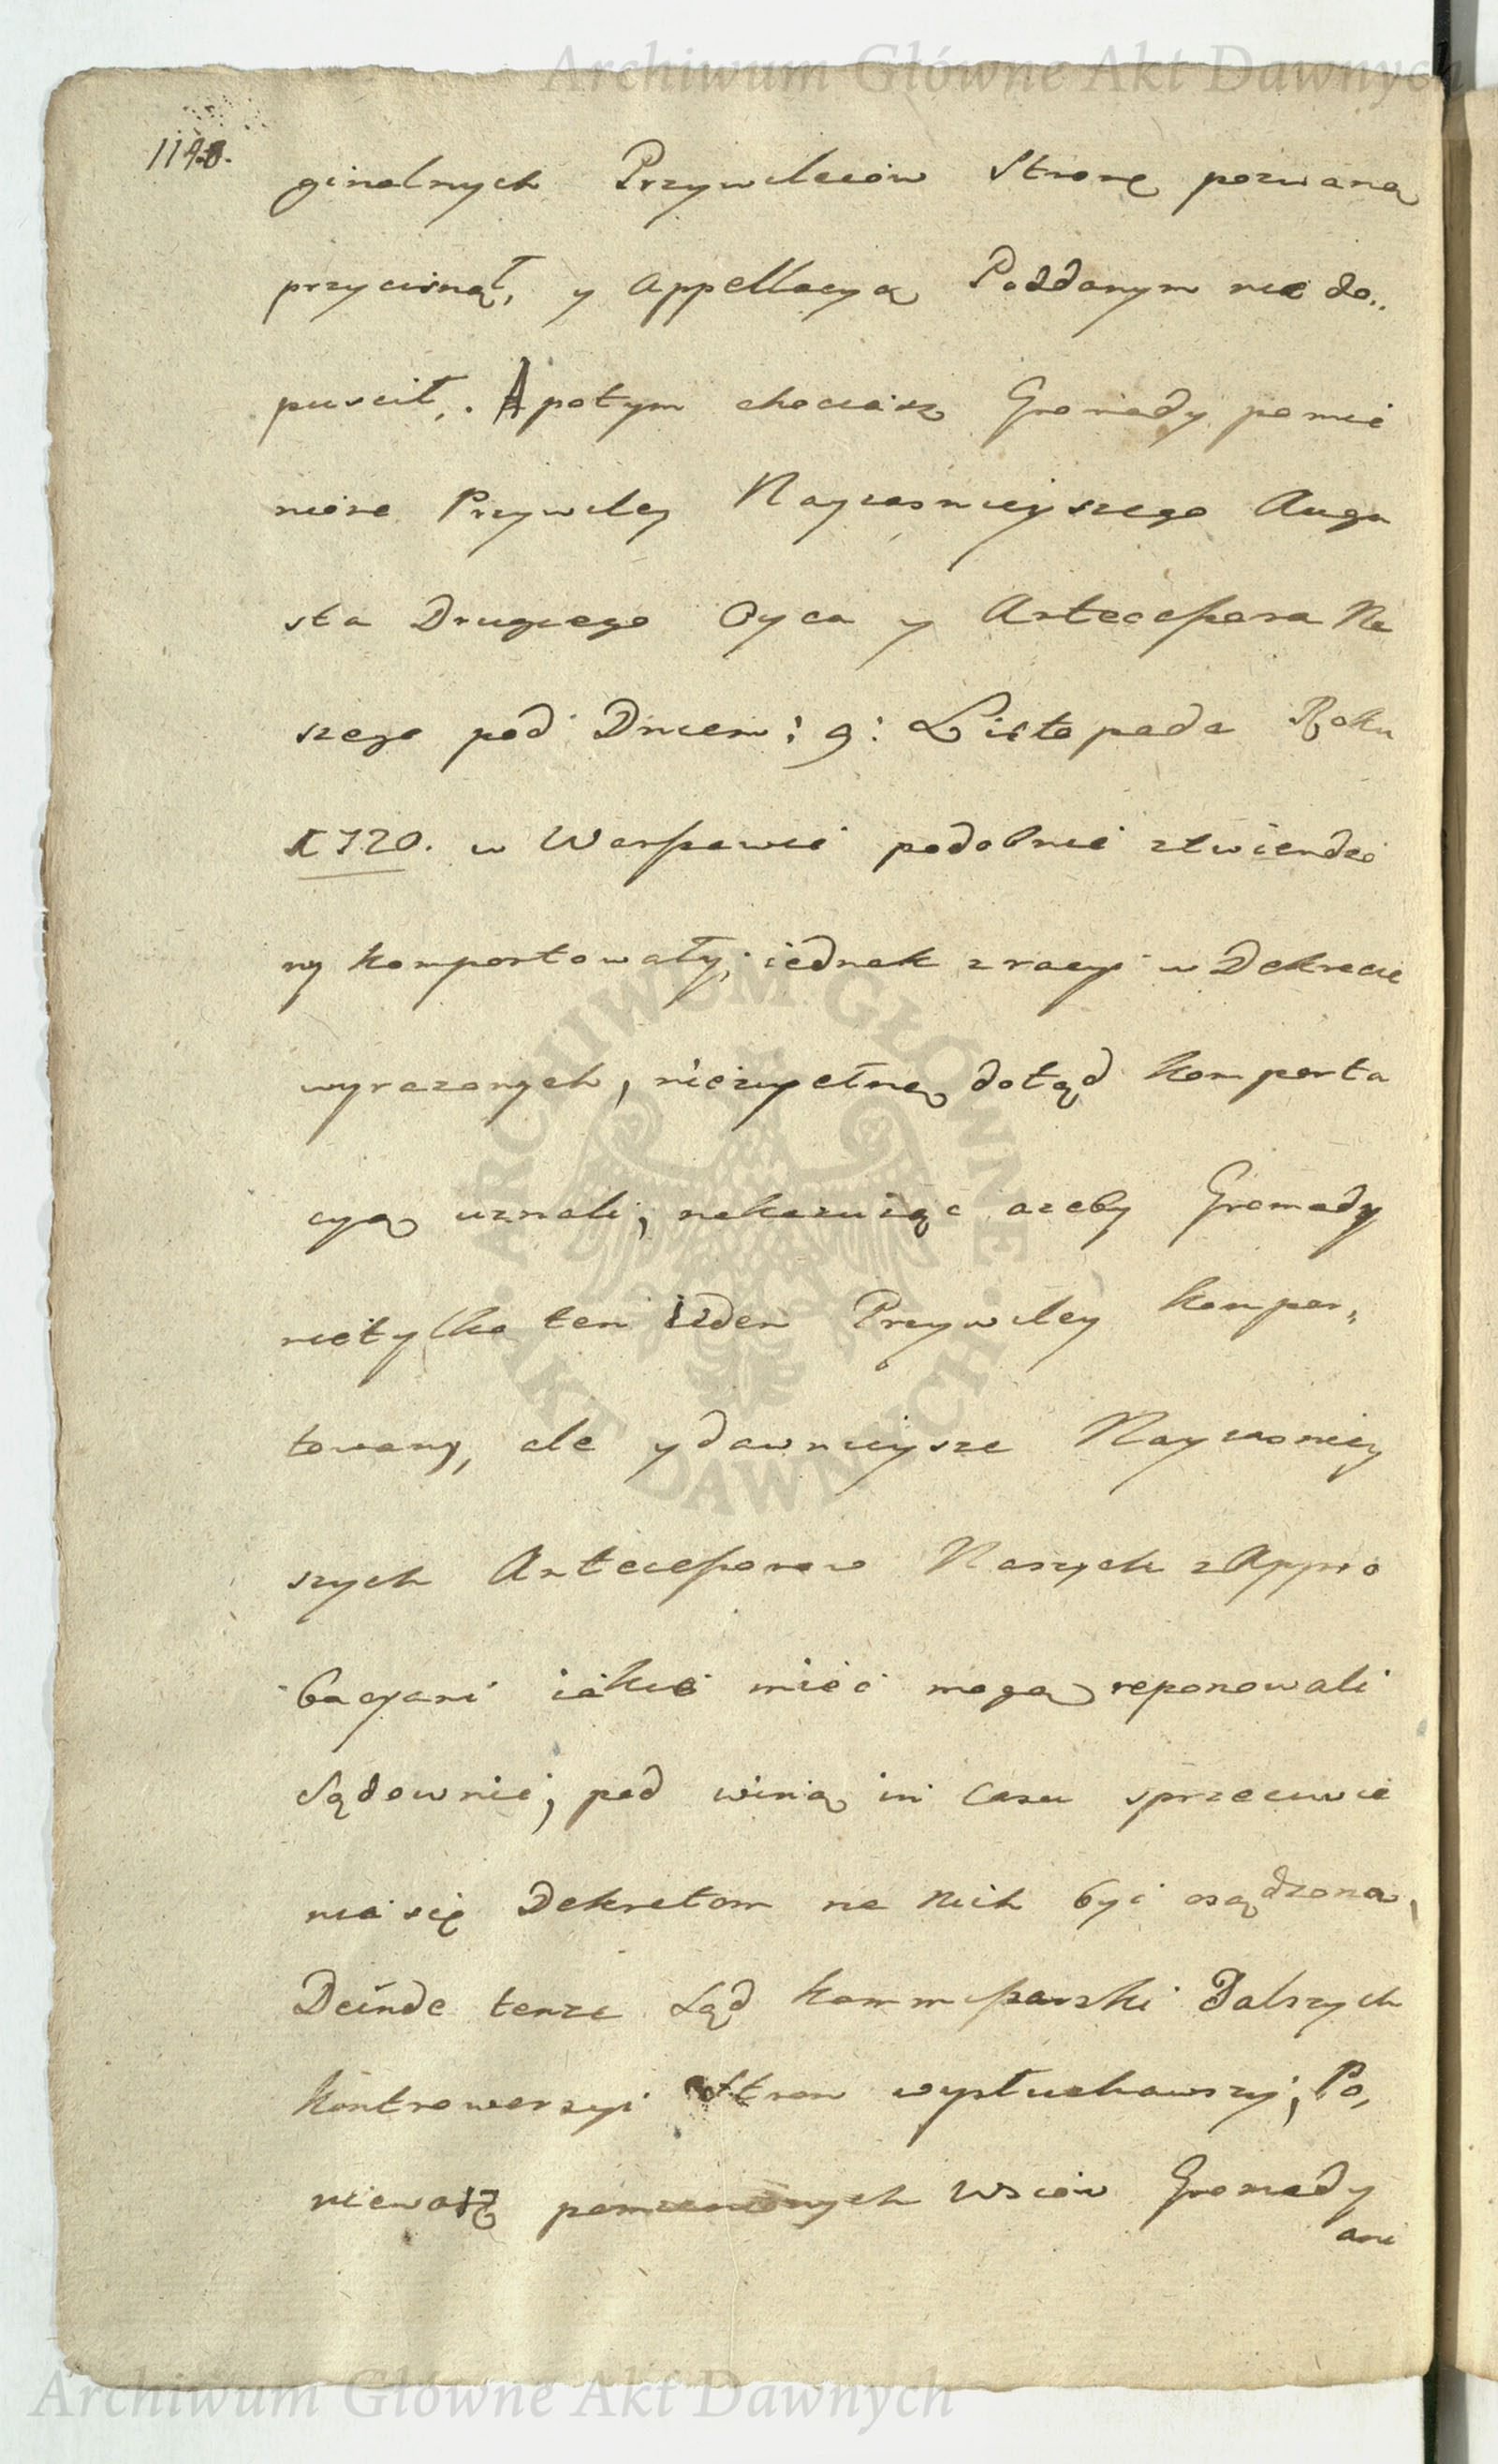 Archiwum Główne Akt Dawnych
1148.
ginalnych Przywileiow Stronę pozwaną
przycisnął, y appellacyą Poddanym nie do..
puscił,. A potym chociasz Gromady pomie
nione Przywiley Nayiasnieyszego Augu
sta Drugiego Oyca y Antecessora Na
szego pod Dniem: 9: Listopada Roku
1720. w Warszawie podobnie ztwierdzo
ny komportowały, iednak z racyi w Dekrecie
wyrazonych, niezupełną dotąd komporta
cyą uznali, nakazuiąc azeby Gromady
nietylko ten ieden Przywiley kompor,,
towany, ale y dawnieysze Nayiasniey
szych Antecessorow Naszych z Appro
bacyami iakie mieć mogą reponowali
sądownie, pod winą in casu sprzeciwie
nia się Dekretom na nich być osądzoną,
Deinde tenze Sąd kommissarski Dalszych
kontrowersyi Stron wysłuchawszy, Po,
niewasz pomienionych Wsiow Gromady
ani
ARCHIWUM GŁÓWNE · AKT DAWNYCH ·
Archiwum Główne Akt Dawnych